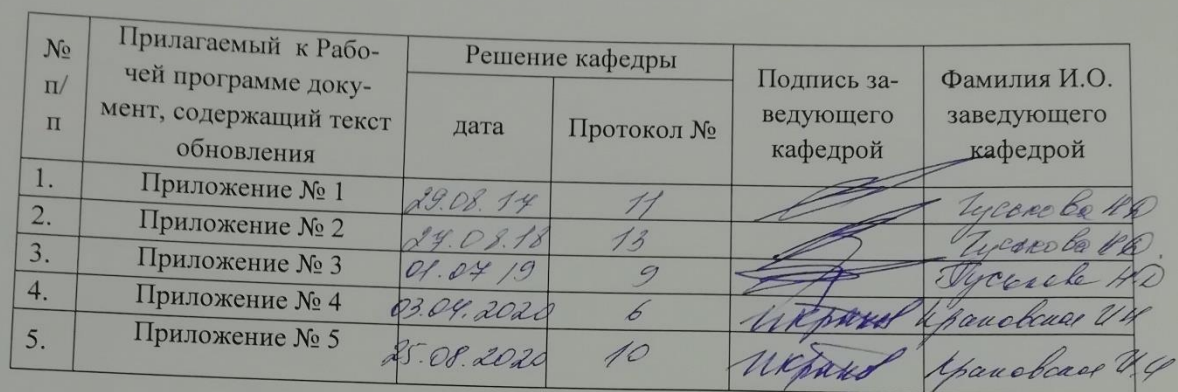 № п/п
Прилагаемый к Рабо-
чей программе доку-
мент, содержащий текст
обновления
Решение кафедры
дата
Протокол №
Подпись за-
ведующего
кафедрой
Фамилия И.О.
заведующего
кафедрой
1. Приложение № 1 29.08.17 11 Гуськова НД
2. Приложение № 2 27.08.18 13 Гуськова НД.
3. Приложение № 3 01.07 19 9 Гуськова НД
4. Приложение № 4 03.04.2020 6 Краковская ИН
5. Приложение № 5 25.08.2020 10 Краковская И.Н